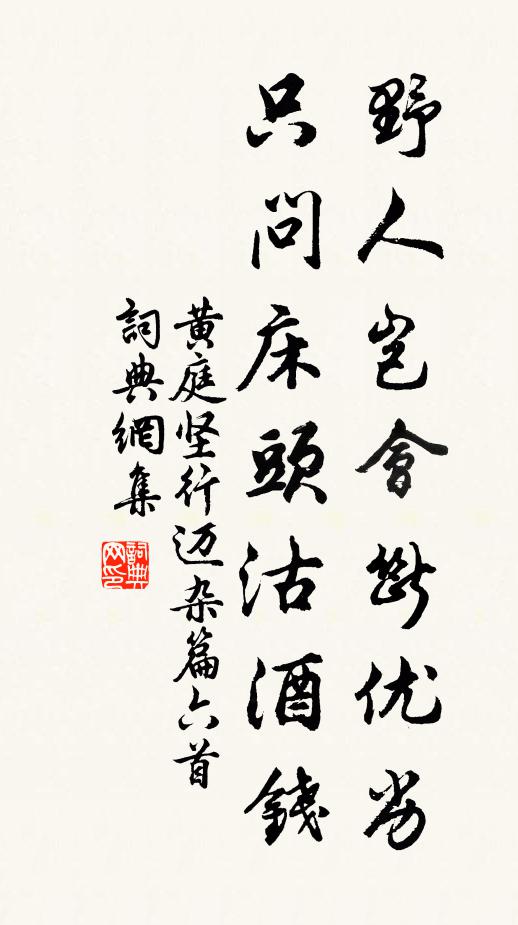 野人岂會斷优劣
只問床頭沽酒錢
黄庭坚行迈杂篇六首
詞典網集
詞典网印